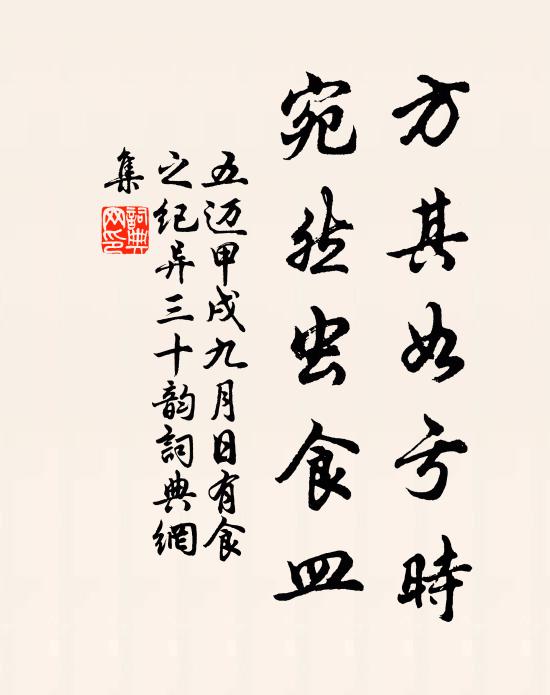 方其如亏時
宛然虫食皿
五迈甲戌九月日有食
之纪异三十韵詞典網
集
詞典网印